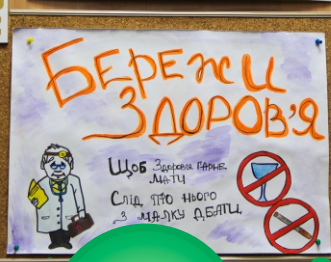 БЕРЕЖИ
ЗДОРОВ'Я
ЩОБ ЗДОРОВЯ ГАРНЕ
МАТИ
СЛІД ПРО НЬОГО
З МАЛКУ ДБАТИ